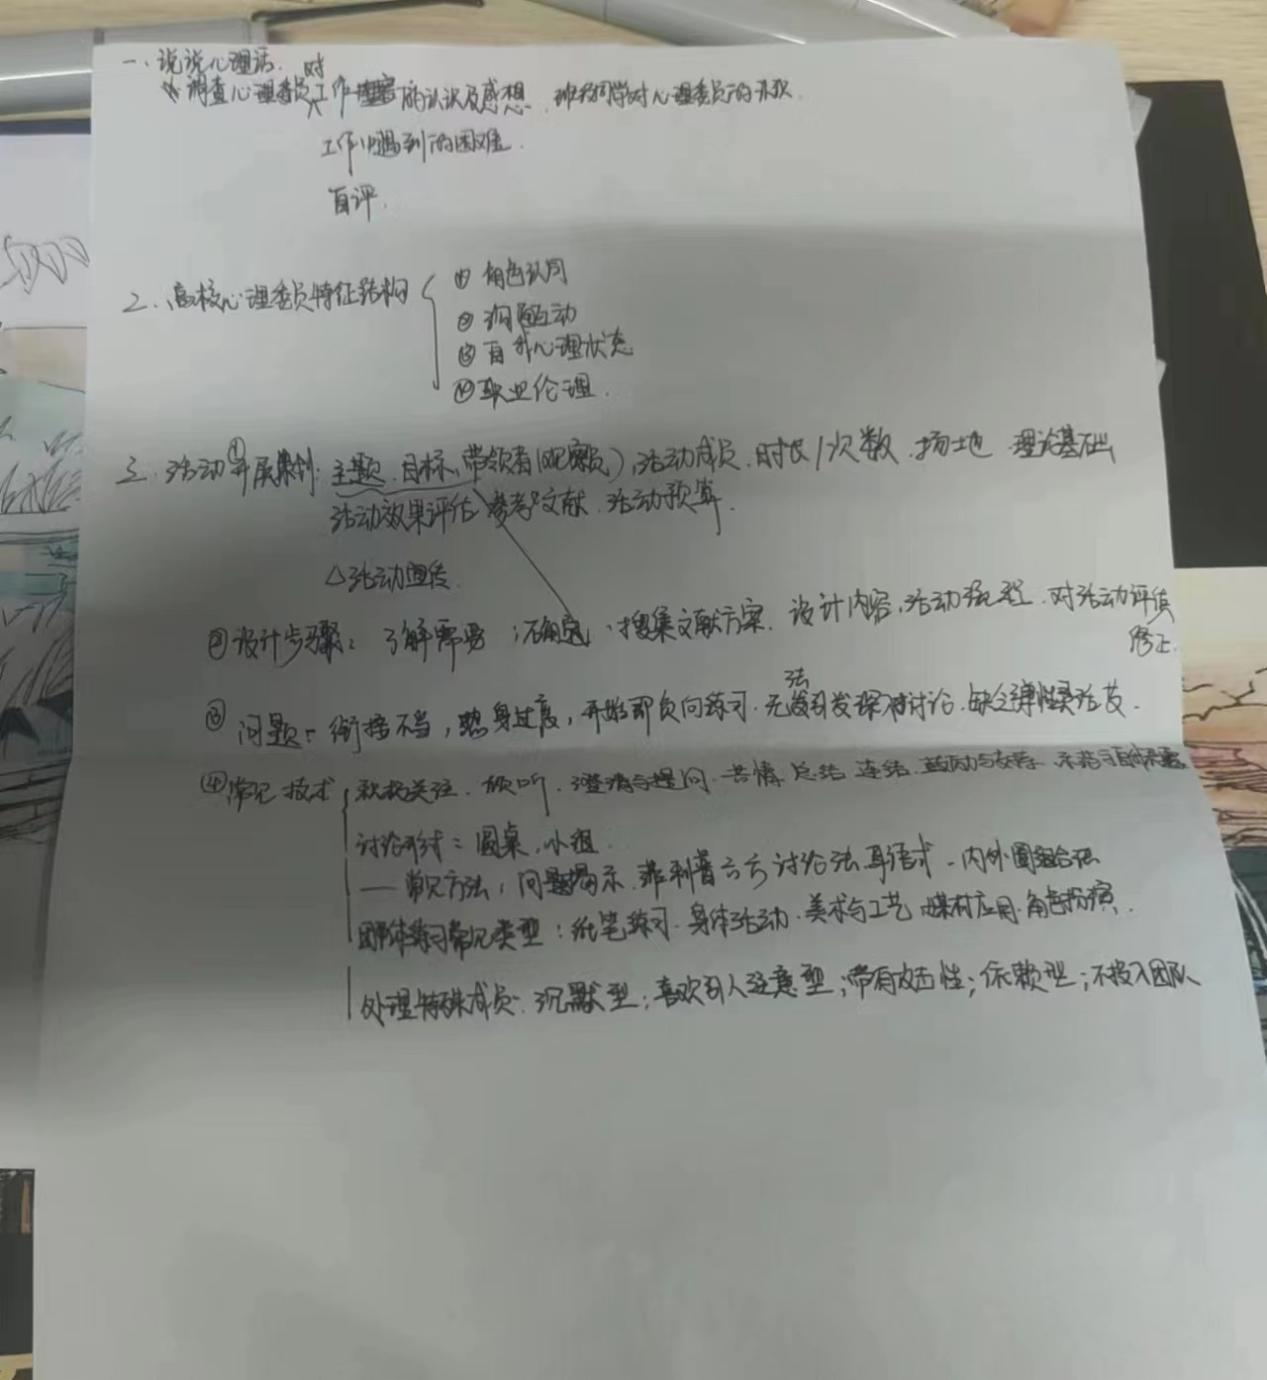 一、说说心理话.
调查心理委员对工作的认识及感想. 班级同学对心理委员的
工作中遇到的困难.
自评.
2、高校心理委员特征结构
① 角色认同
② 沟通互动
③ 自我心理状态
④ 职业伦理.
三、活动①开展策划: 主题、目标、带领者(观察员)、活动成员、时长/次数、场地、理论基础
活动效果评估、参考文献、活动预算.
△活动宣传.
②设计步骤: 了解需要、确定、搜集文献方案、设计内容、活动流程、对活动评估
修正.
③ 问题: 衔接不当, 热身过度, 开始即负向练习, 无法引发深入讨论, 缺乏弹性灵活度.
④常见技术 积极关注、倾听、澄清与提问、共情、总结、连结、鼓励与支持、示范与
讨论形式: 圆桌、小组.
— 常见方法: 问题揭示、菲利普六六讨论法、耳语式、内外圈组合
团体练习常见类型: 纸笔练习、身体活动、美术与工艺、媒材应用、角色扮演.
处理特殊成员: 沉默型; 喜欢引人注意型; 带有攻击性; 依赖型; 不投入团队